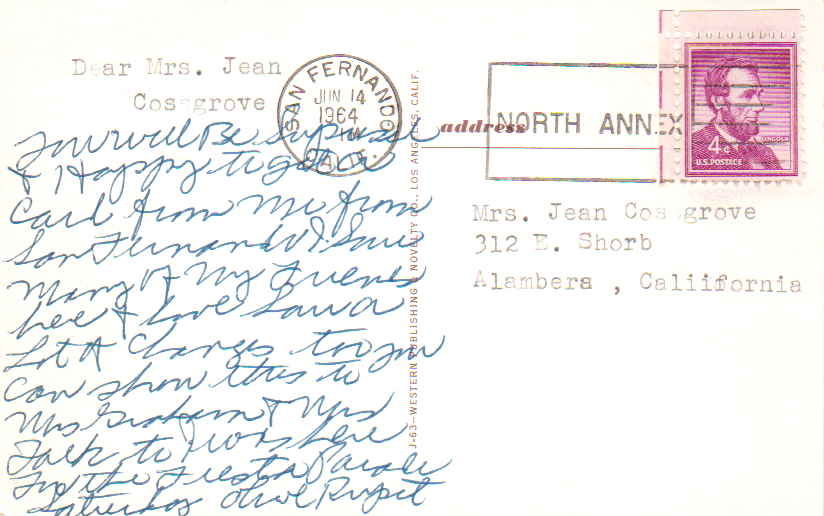 Dear Mrs. Jean
Cosgrove
You will Be Suprise
& Happy to get a
Card from Me from
San Fernando I. Saw
Many of My Friends
here & love Saw a
Lot of Changes too you
Can show this to
Mrs Graham & Mrs
Falk to
In the Fiesta Parade
Saturday
SAN FERNANDO
JUN 14
1964
CALIF.
NORTH ANNEX
address
4¢
LINCOLN
U.S. POSTAGE
Mrs. Jean Cosgrove
312 E. Shorb
Alambera , Caliifornia
J-63—WESTERN PUBLISHING & NOVELTY CO., LOS ANGELES, CALIF.